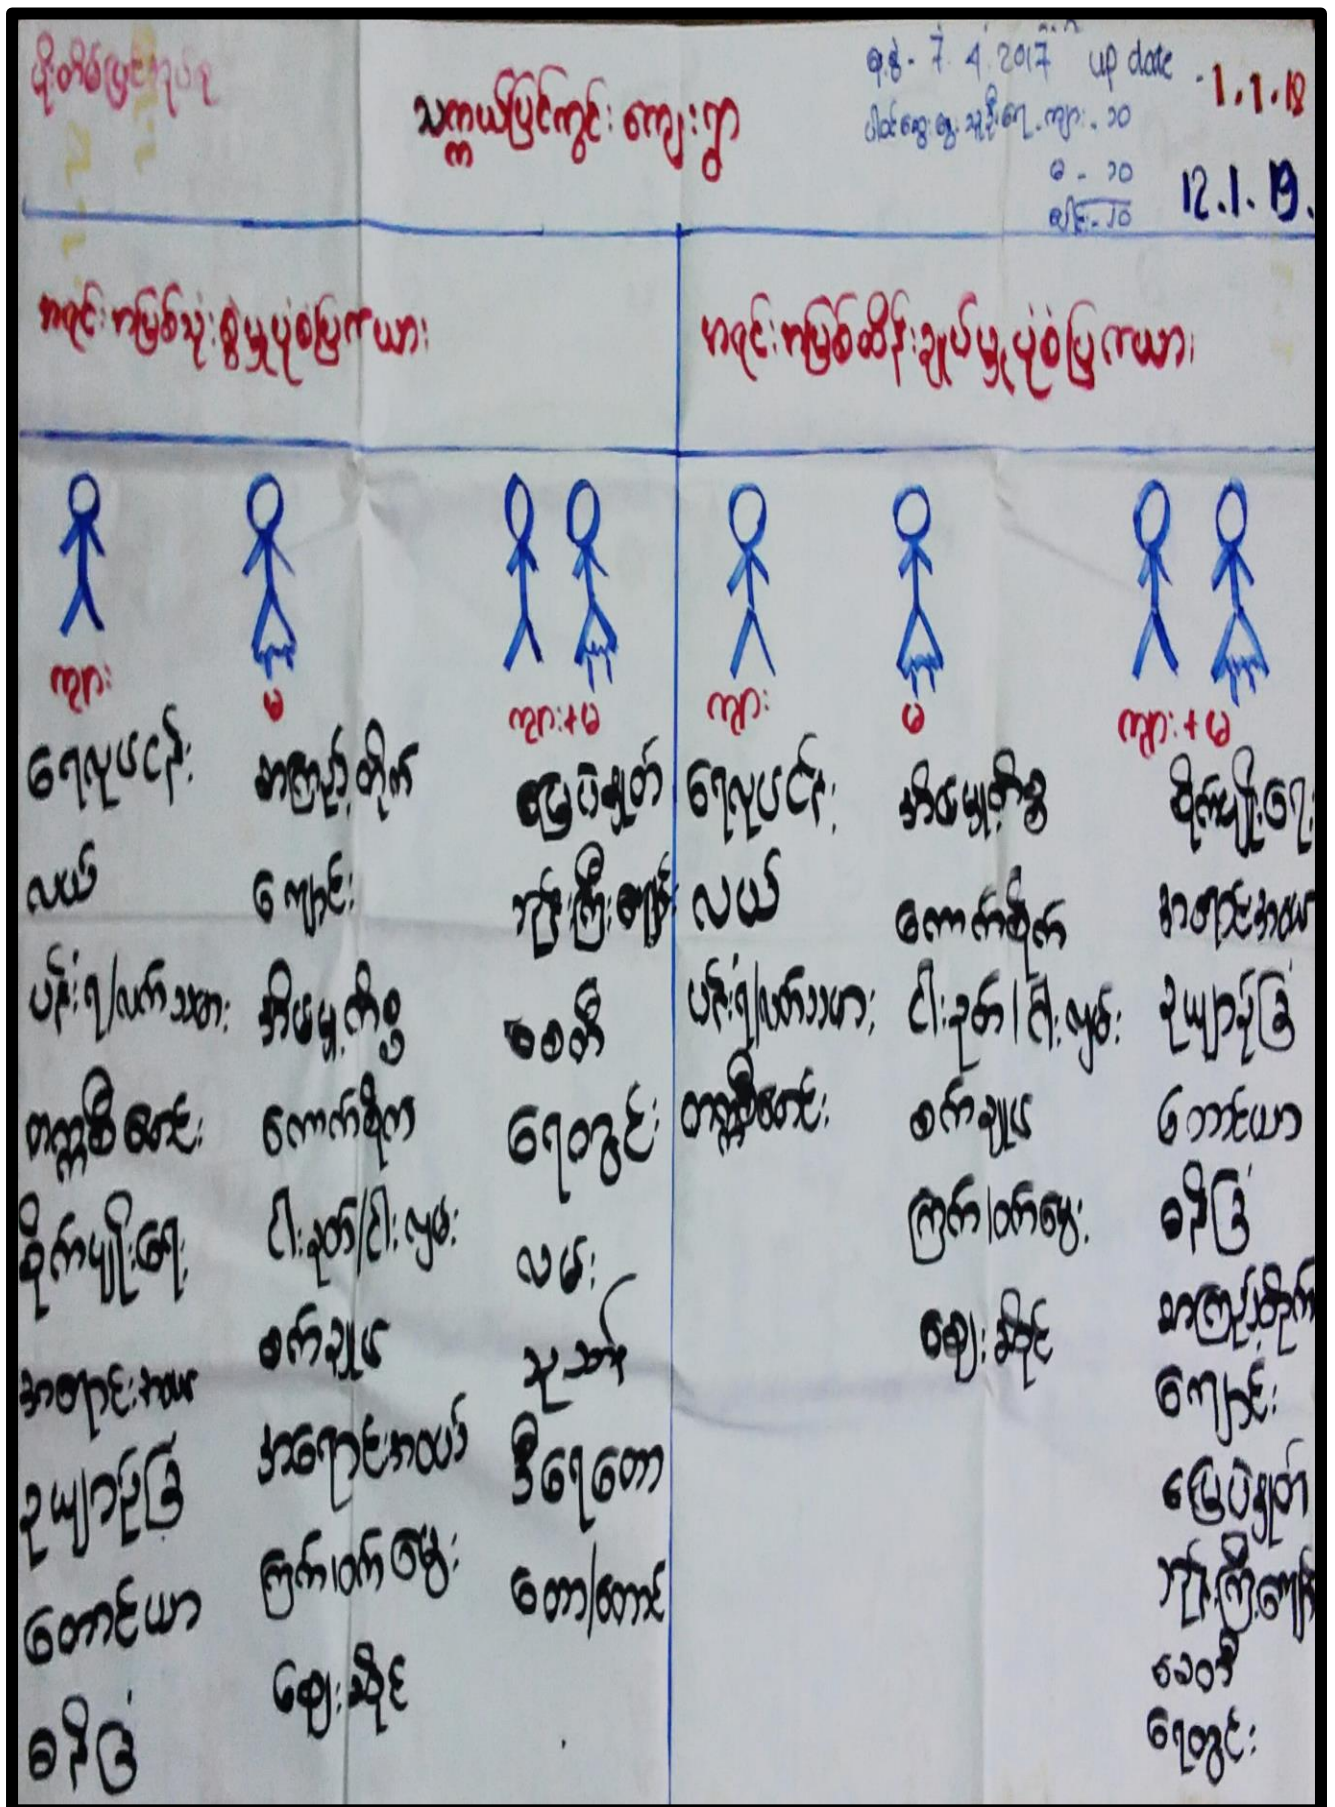 သက္ကယ်ပြင်ကွင်း ကျေးရွာ
ရ.စွဲ - 7. 4. 2017 up date - 1.1.18
ပါဝင်ဆွေးနွေးသူဦးရေ - ကျား - ၁၀
မ - ၁၀
ပေါင်း - ၂၀
12.1.19.
အရင်းအမြစ်သုံးစွဲမှုပုံစံပြဇယား
အရင်းအမြစ်ထိန်းချုပ်မှုပုံစံပြဇယား
ကျား
မ
ကျား+မ
ကျား
မ
ကျား+မ
ရေလုပ်ငန်း
လယ်
ပန်းရံ/လက်သမား
တက္ကစီမောင်း
စိုက်ပျိုးရေး
အရောင်းအဝယ်
ဥယျာဉ်ခြံ
တောင်ယာ
ဓနိခြံ
စာကြည့်တိုက်
ကျောင်း
အိမ်မှုကိစ္စ
ကောက်စိုက်
ငါးခုတ်/ငါးလှမ်း
စက်ချုပ်
အရောင်းအဝယ်
ကြက်၊ဝက်မွေး
ဈေးဆိုင်
မြေပဲနှုတ်
ဘုန်းကြီးကျောင်း
စေတီ
ရေတွင်း
လမ်း
သုသာန်
ဒီရေတော
တော/တောင်
ရေလုပ်ငန်း
လယ်
ပန်းရံ/လက်သမား
တက္ကစီမောင်း
အိမ်မှုကိစ္စ
ကောက်စိုက်
ငါးခုတ်/ငါးလှမ်း
စက်ချုပ်
ကြက်၊ဝက်မွေး
ဈေးဆိုင်
စိုက်ပျိုးရေး
အရောင်းအဝယ်
ဥယျာဉ်ခြံ
တောင်ယာ
ဓနိခြံ
စာကြည့်တိုက်
ကျောင်း
မြေပဲနှုတ်
ဘုန်းကြီးကျောင်း
စေတီ
ရေတွင်း